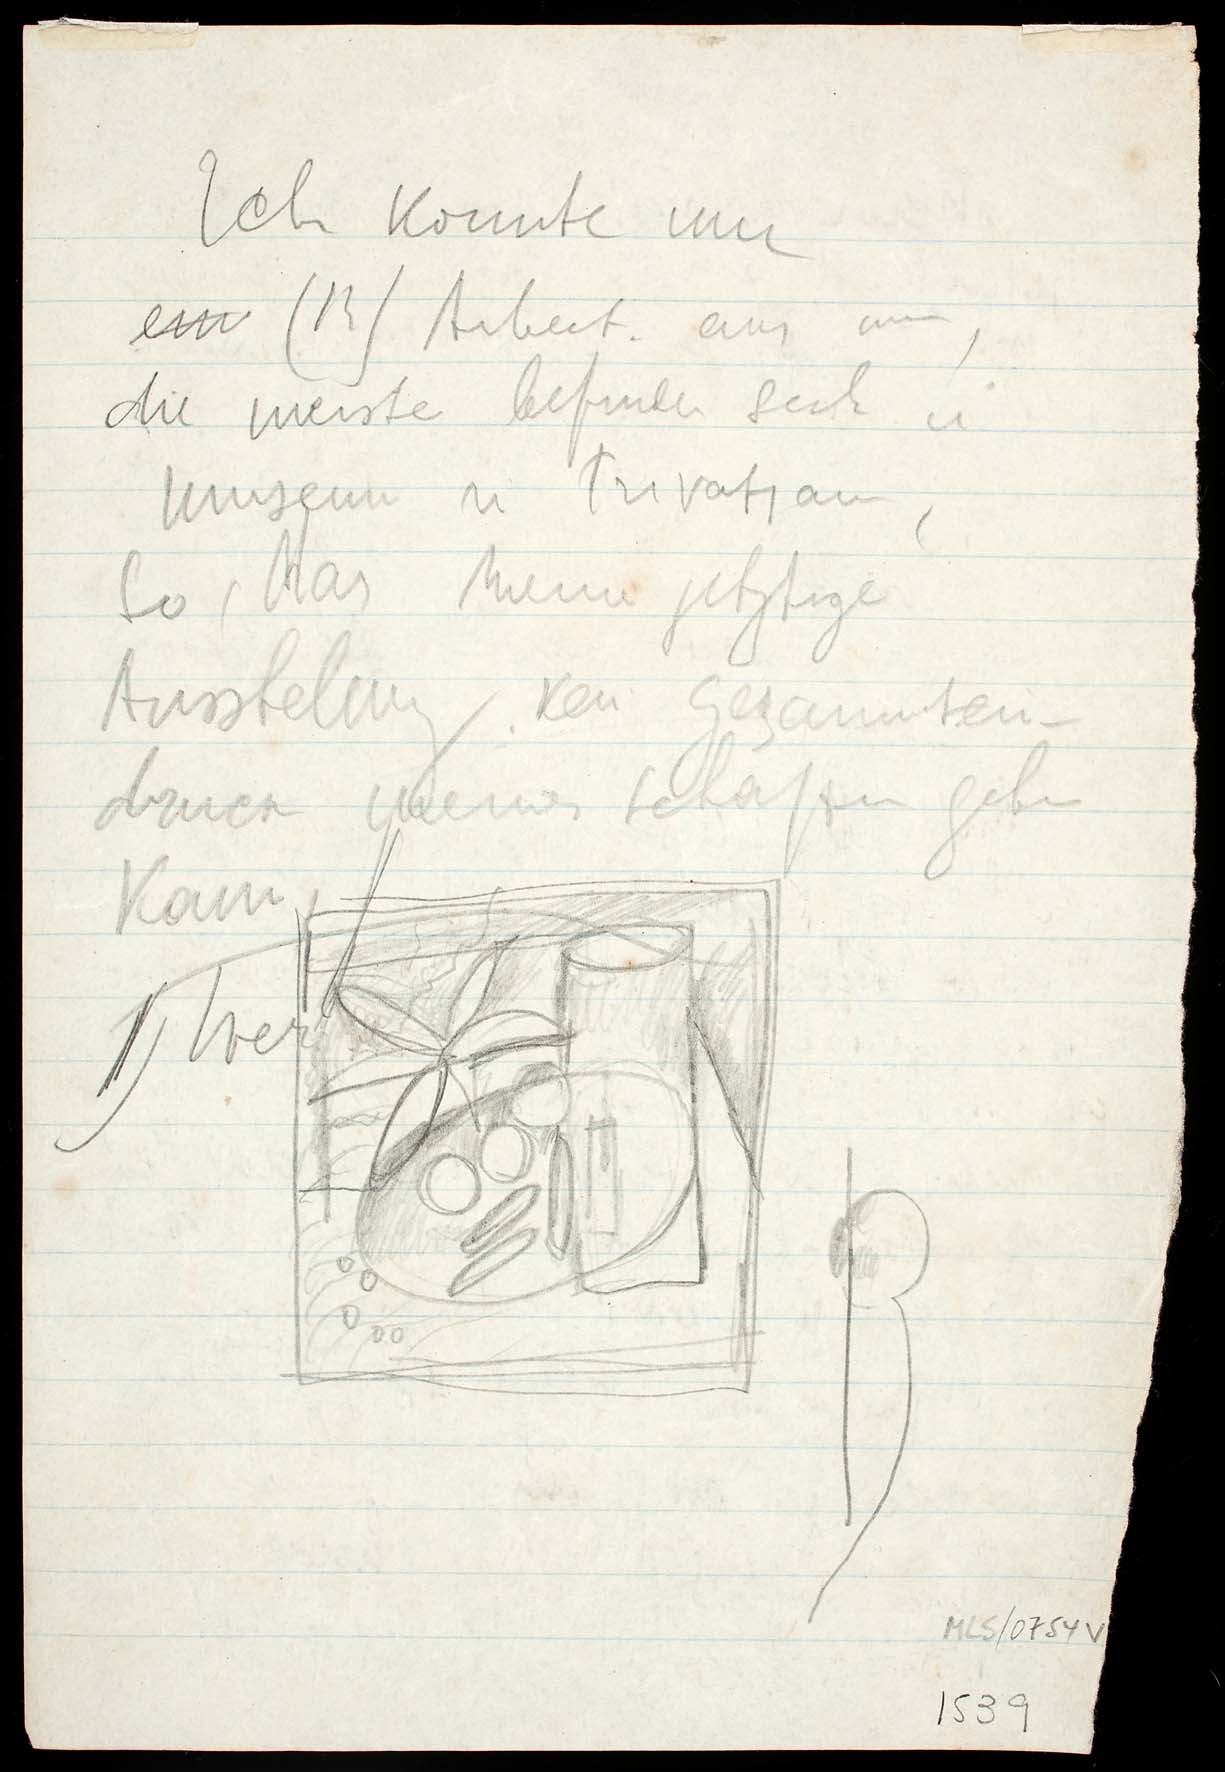 Ich konnte nur
ein (13) Arbeit. aus
die meiste befinden sich i
Museum u Privat
So, das meine jetztige
Ausstelung, kein Gesammtein-
druck meines schaffen geben
kann,
MLS/0754V
1539